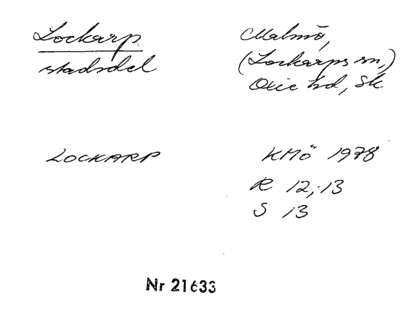 Lockarp
stadsdel
Malmö,
(Lockarps sn,)
Oxie hd, Sk
LOCKARP
KMö 1978
R 12,13
S 13
Nr 21633